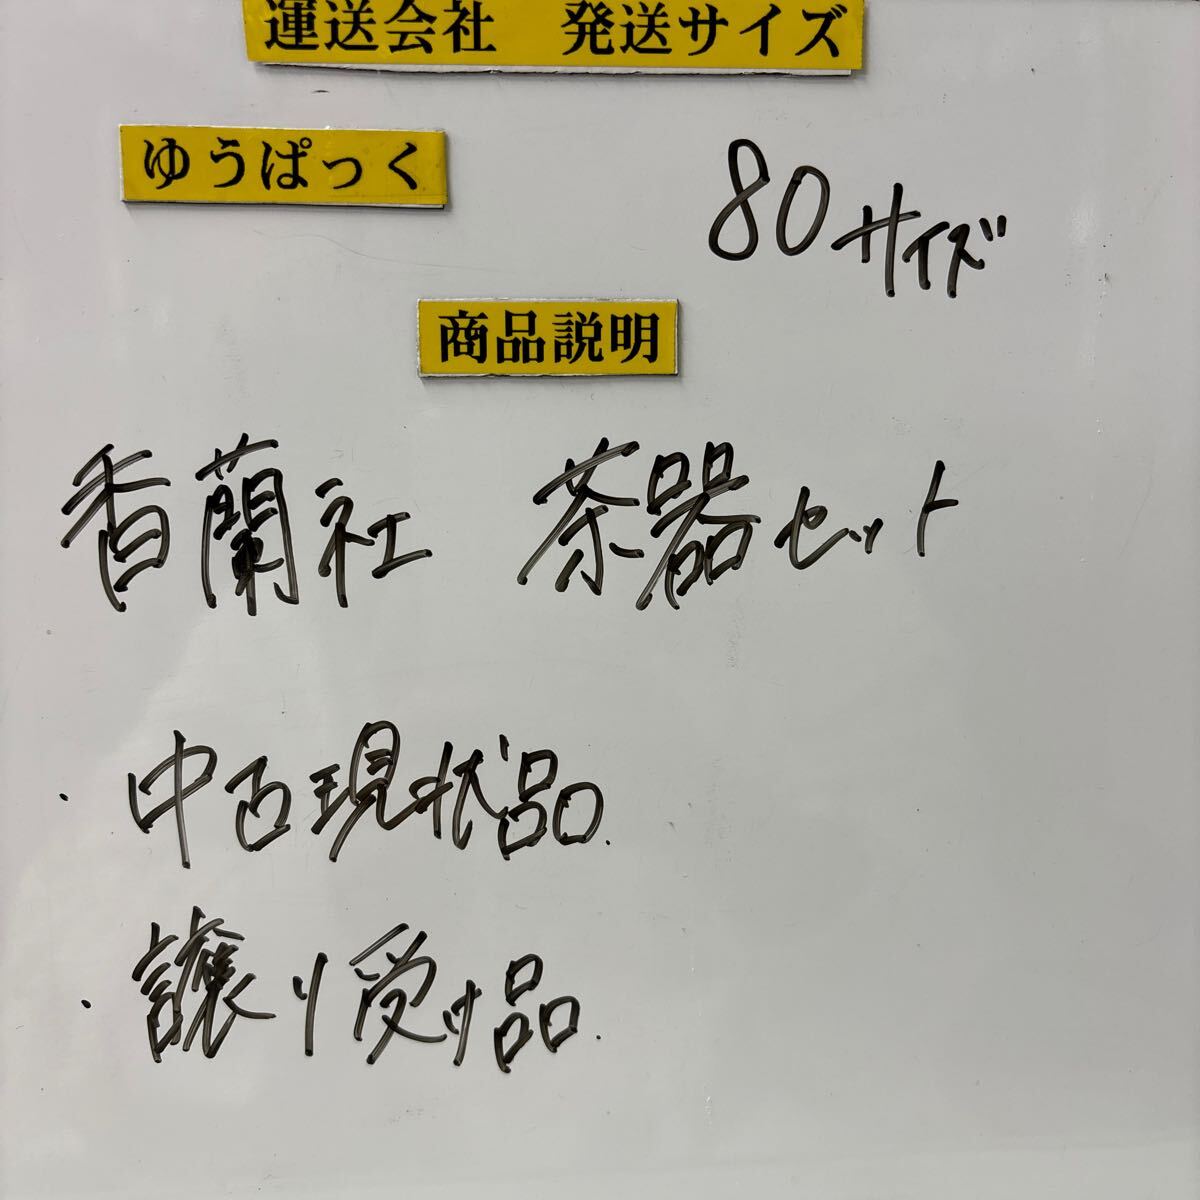 運送会社　発送サイズ
ゆうぱっく　80サイズ
商品説明
香蘭社　茶器セット
・中古現状品.
・譲り受け品.